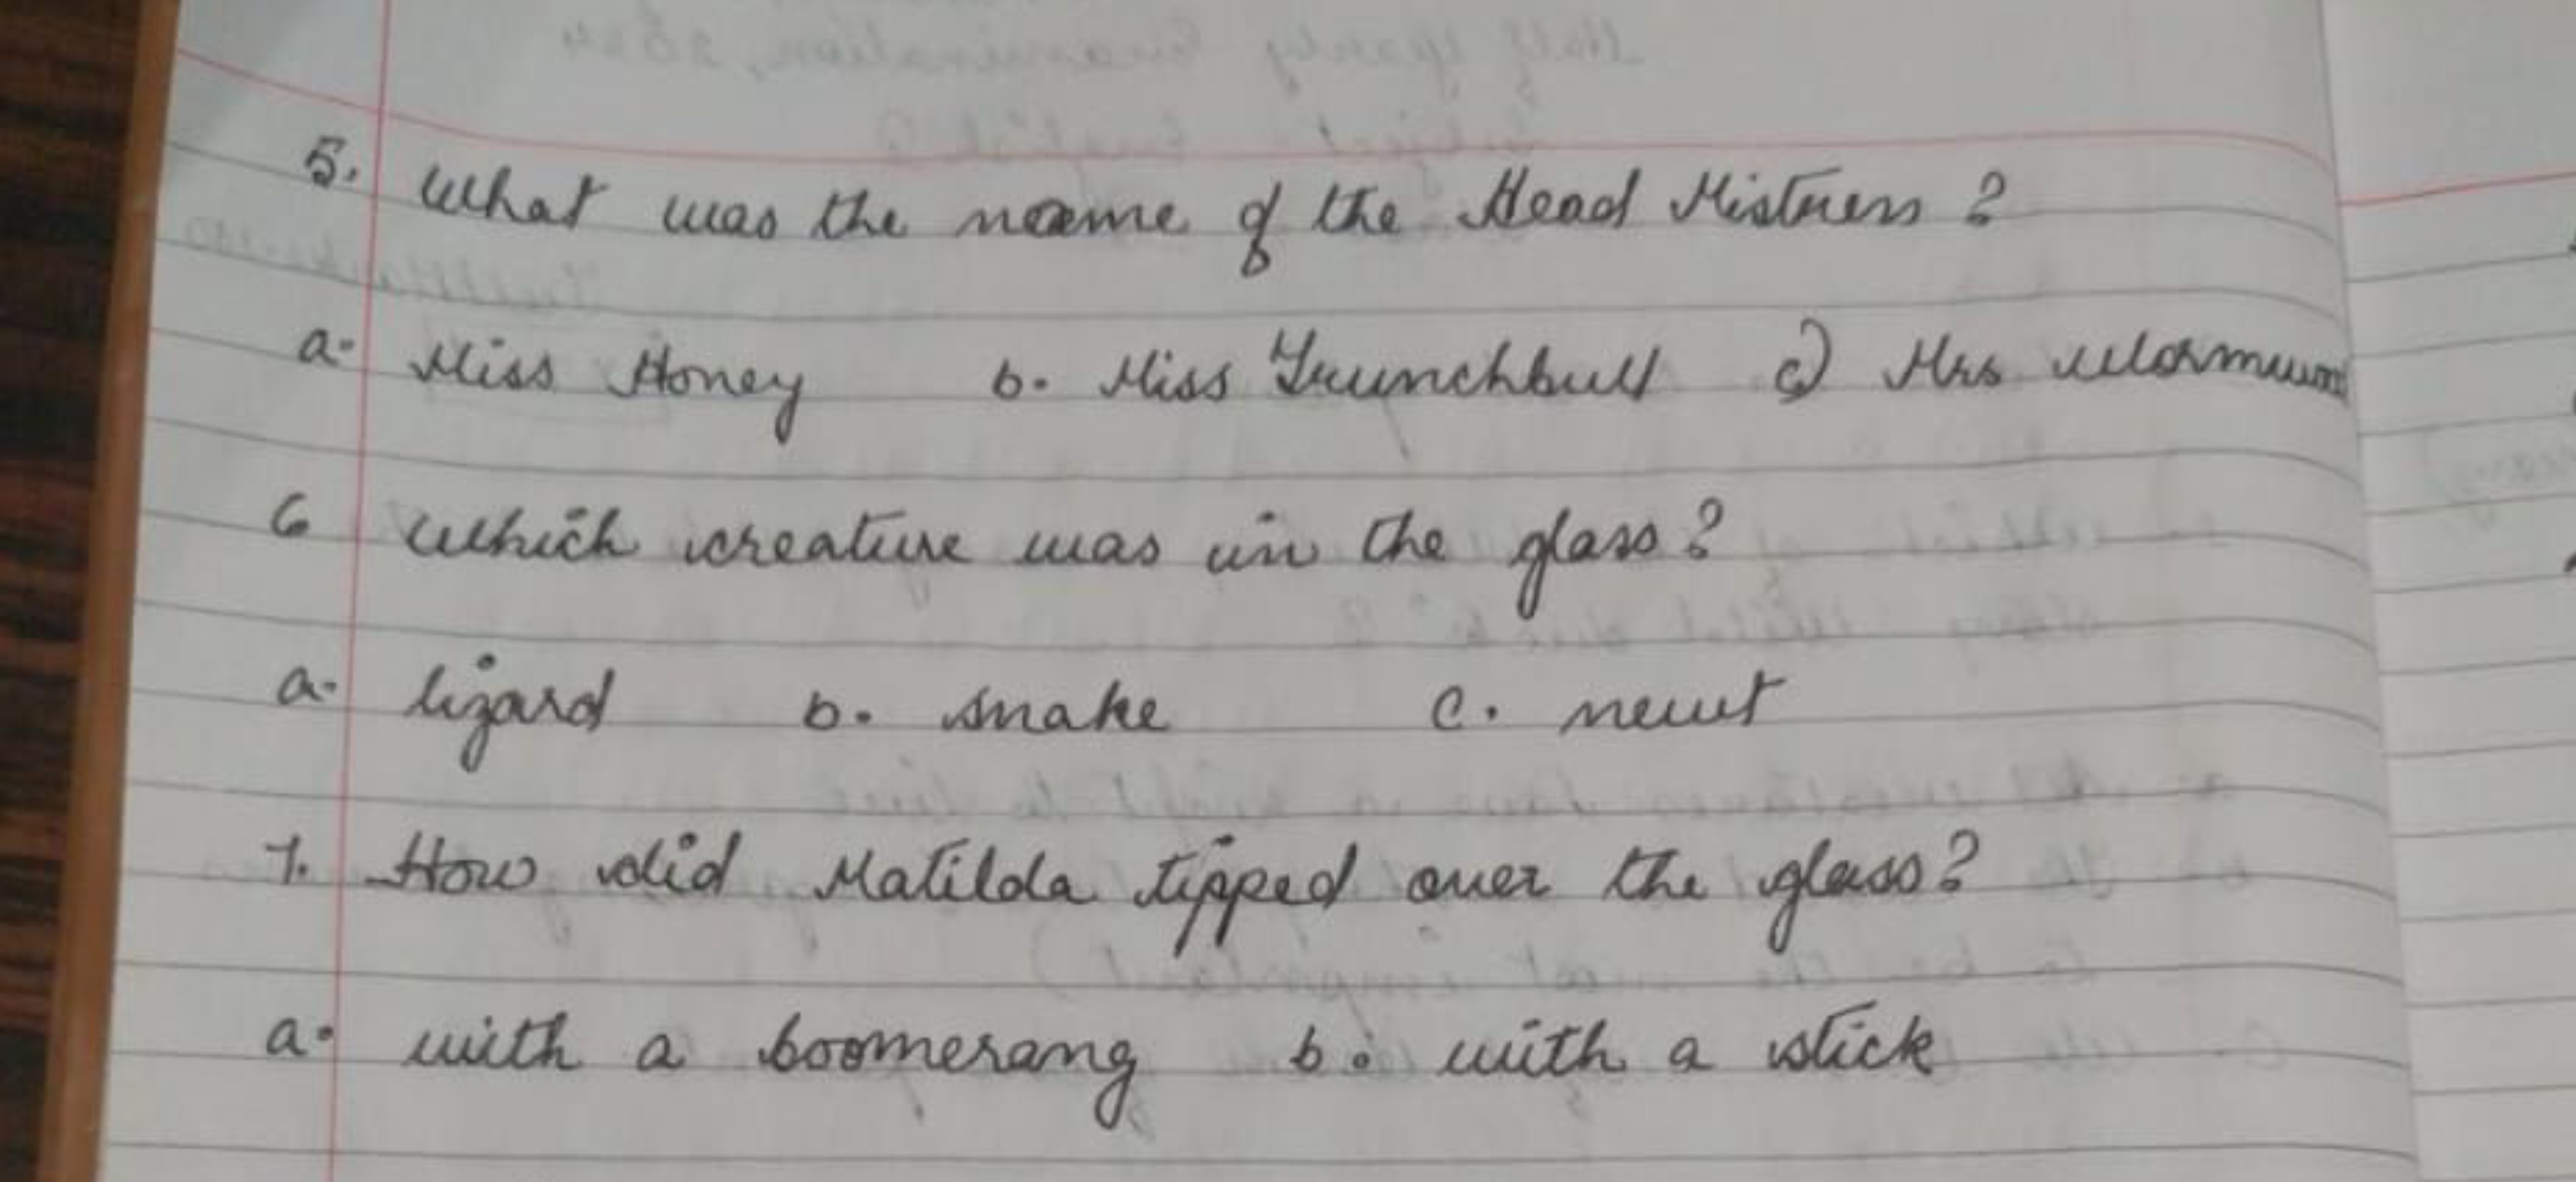 5. What was the name of the Head Mistress ?
a. Miss Honey b. Miss Trunchbull c) Mrs Wormwood
6 Which creature was in the glass ?
a. lizard b. snake c. newt
7. How did Matilda tipped over the glass ?
a. with a boomerang b. with a stick